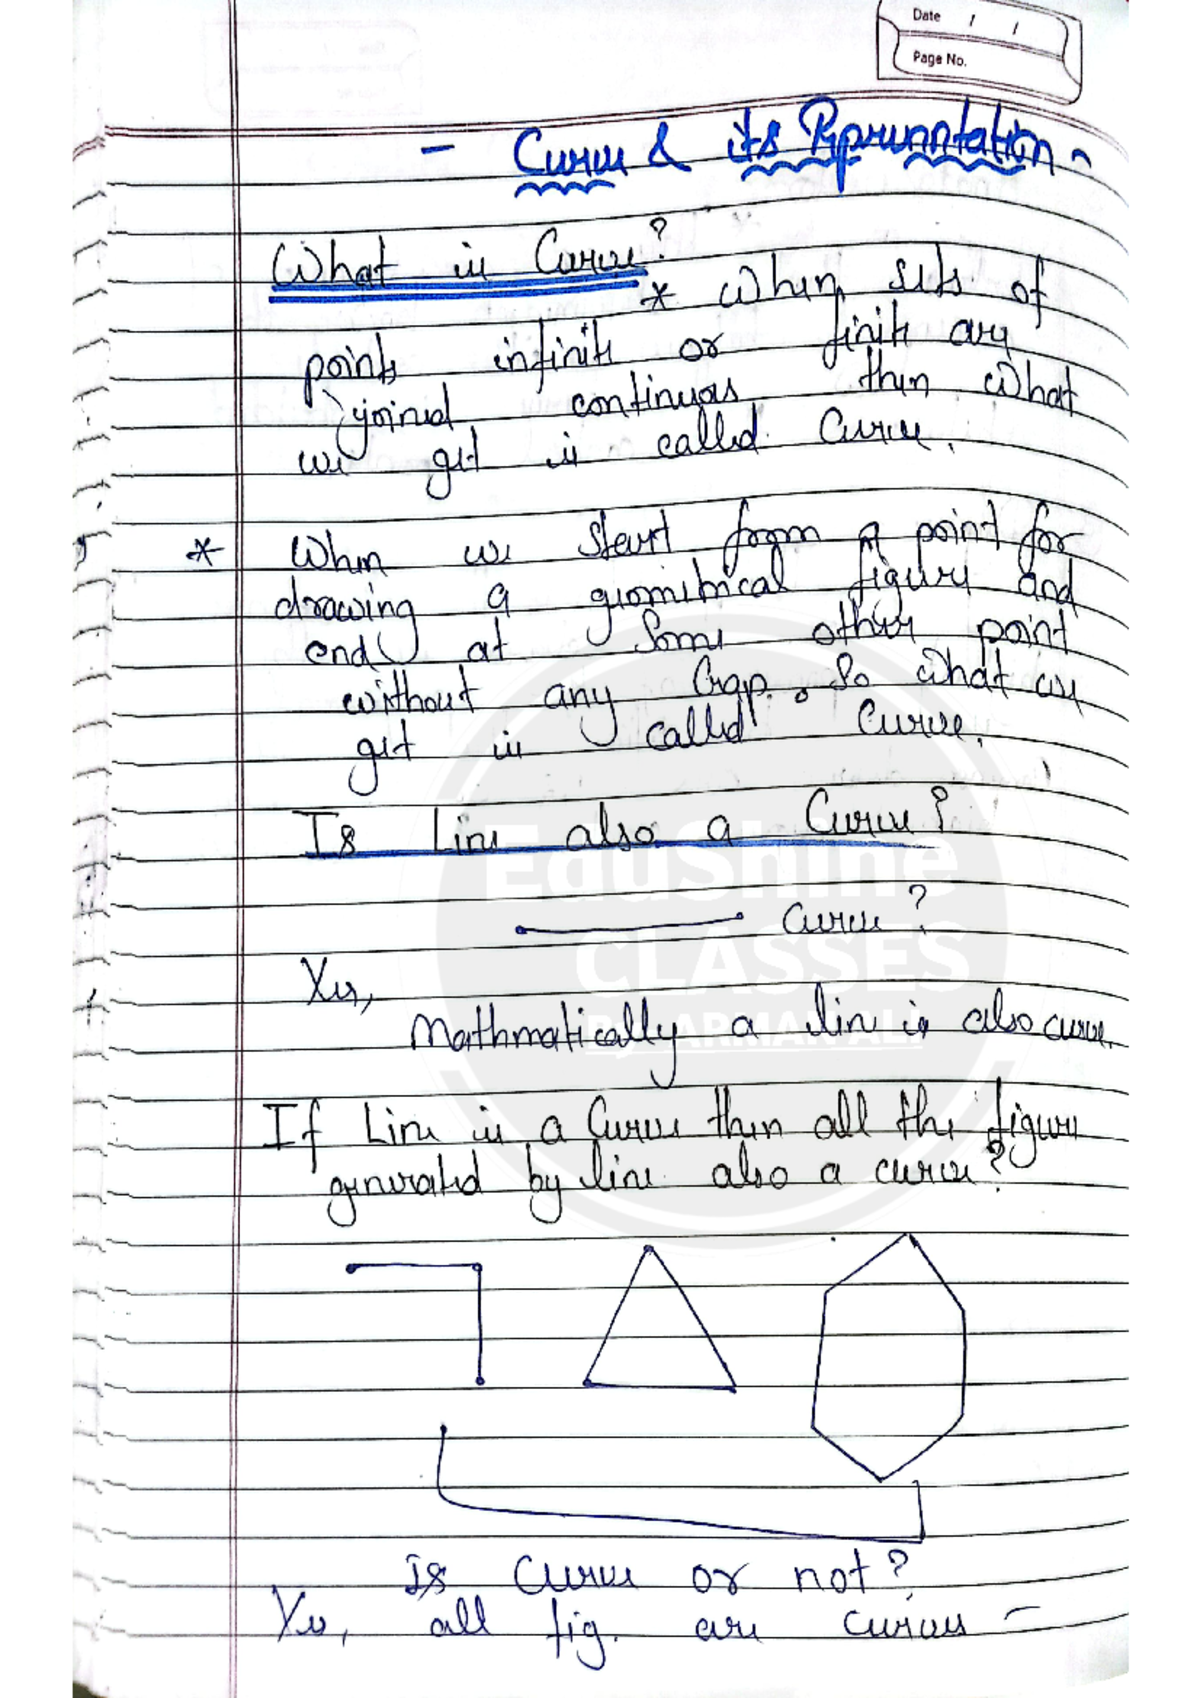 Date / /
Page No.
- Curve & its Representation -
What is Curve?
* When sets of
points infinite or finite are
joined continuos then what
we get is called Curve.
* When we start from a point for
drawing a geometrical figure and
end at some other point
without any Gap. So what we
get is called Curve.
Is Line also a Curve?
Curve?
Yes,
Mathmatically a line is also curve.
If Line is a Curve then all the figure
generated by line also a curve?
Is Curve or not?
Yes, all fig. are curves -
EduShine
CLASSES
By ARMAN ALI